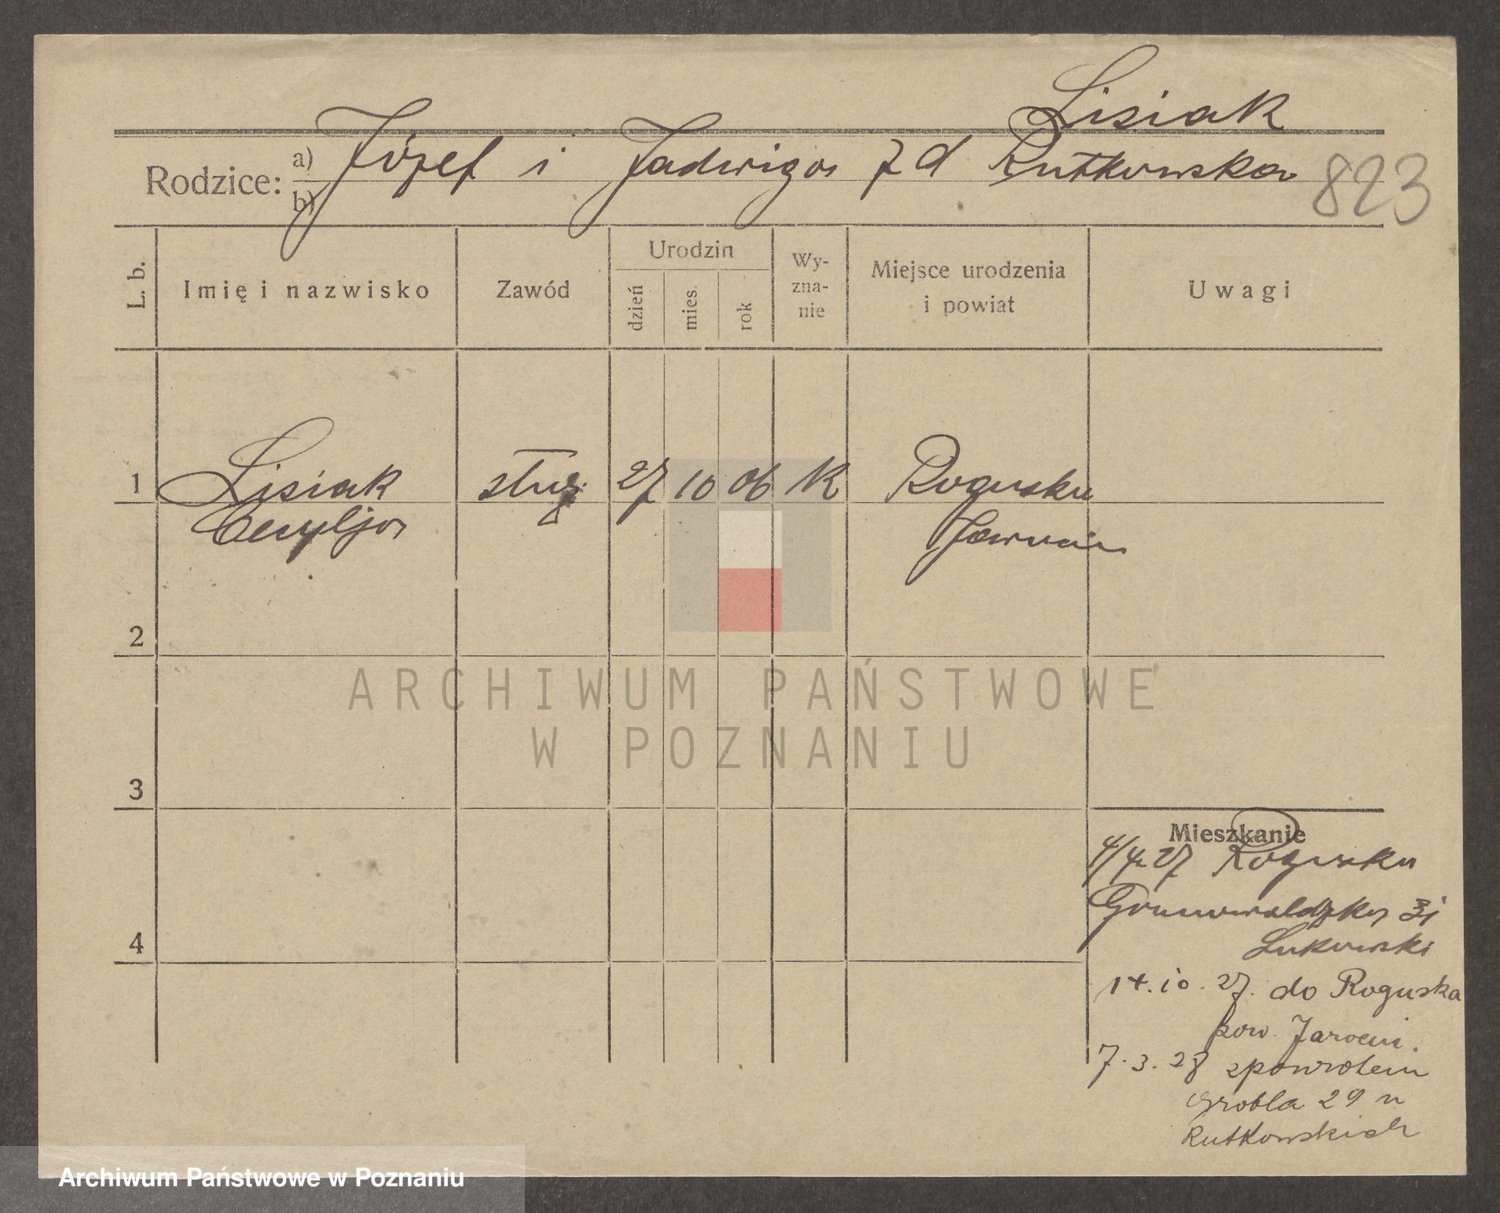 Lisiak
Rodzice: a) Józef i Jadwiga z d Rutkowska
b)
823
L. b.
Imię i nazwisko
Zawód
Urodzin
dzień
mies.
rok
Wy-
zna-
nie
Miejsce urodzenia
i powiat
Uwagi
1 Lisiak służ. 27 10 06 K Roguska
Cecylja Jarocin
2
3
4
Mieszkanie
4/4 27 Roguska
Grunwaldzka 31
Lukowski
14.10.27. do Roguska
pow. Jarocin.
7.3.28 zpowrotem
Grobla 29 u
Rutkowskich
ARCHIWUM PAŃSTWOWE
W POZNANIU
Archiwum Państwowe w Poznaniu